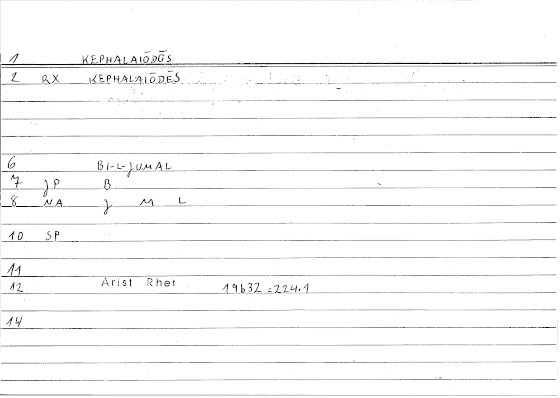 1 KEPHALAIŌDŌS
2 RX KEPHALAIŌDĒS
6 BI-L-JUMAL
7 JP B
8 NA J M L
10 SP
11
12 Arist Rhet 19632=224.1
14